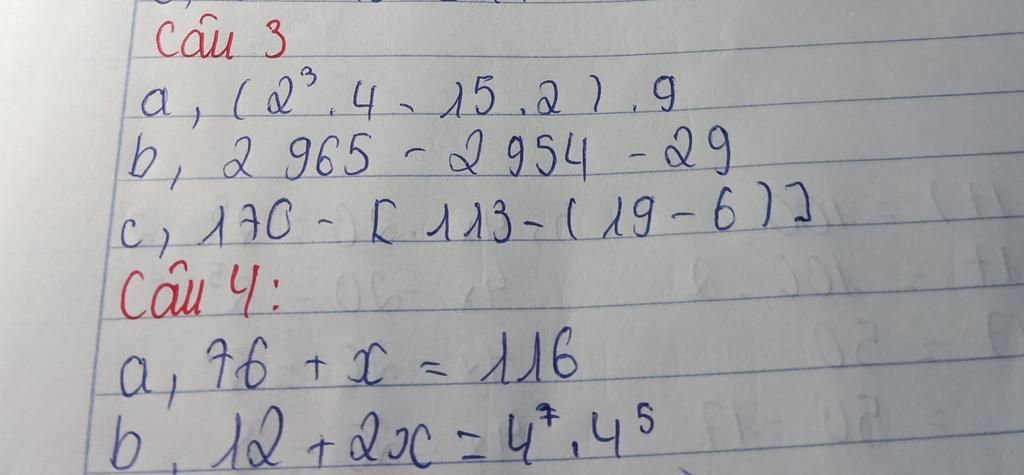 Câu 3
a, (2³.4 - 15.2).9
b, 2 965 - 2 954 - 29
c, 170 - [113 - (19 - 6)]
Câu 4:
a, 76 + x = 116
b, 12 + 2x = 4⁷.4⁵